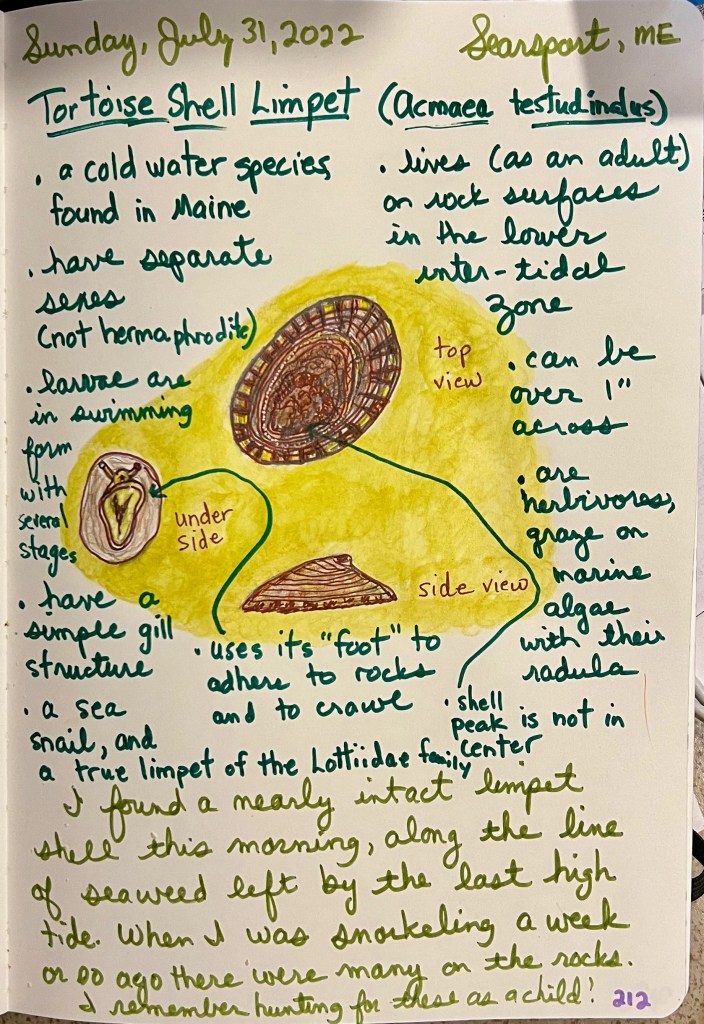 Sunday, July 31, 2022
Searsport, ME
Tortoise Shell Limpet (Acmaea testudinalus)
• a cold water species,
found in Maine
• have separate
sexes
(not hermaphroditic)
• larvae are
in swimming
form
with
several
stages
• have a
simple gill
structure
• a sea
snail, and
a true limpet of the Lottiidae family
• lives (as an adult)
on rock surfaces
in the lower
inter-tidal
zone
• can be
over 1"
across
• are
herbivores,
graze on
marine
algae
with their
radula
top
view
under
side
side view
• uses its "foot" to
adhere to rocks
and to crawl
• shell
peak is not in
center
I found a nearly intact limpet
shell this morning, along the line
of seaweed left by the last high
tide. When I was snorkeling a week
or so ago there were many on the rocks.
I remember hunting for these as a child!
212